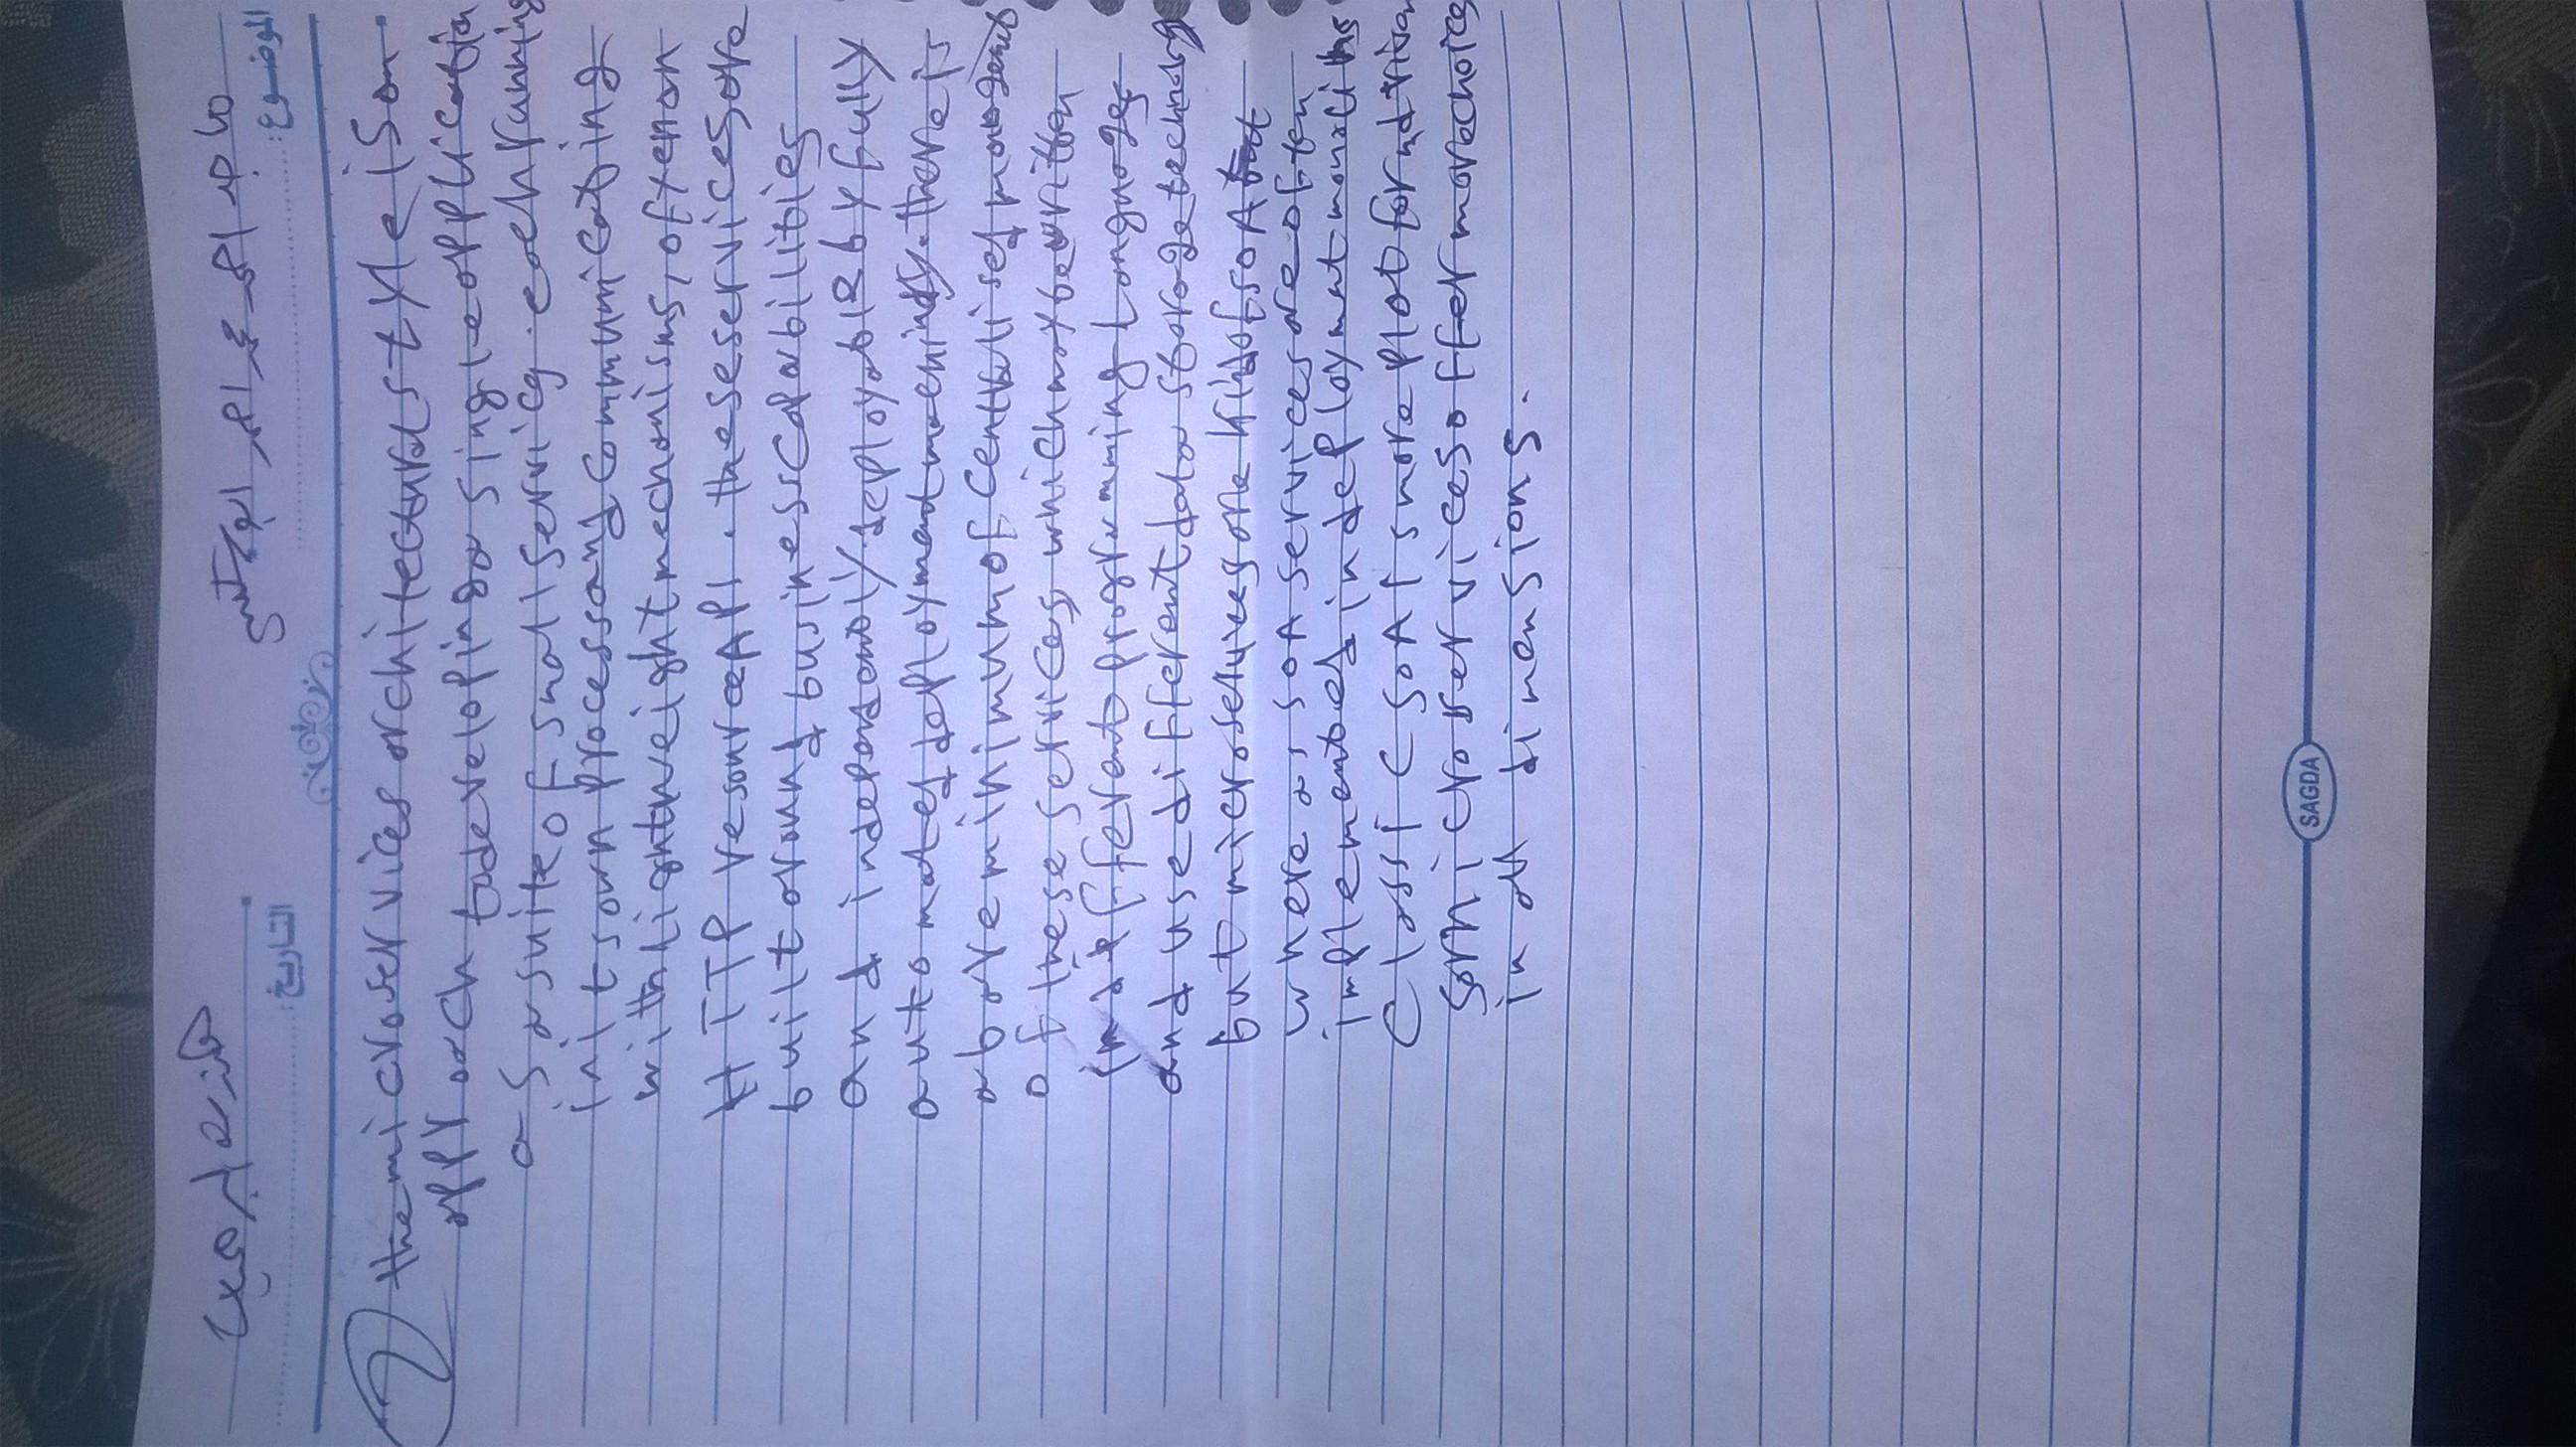 ماجد احمد محمد احمد ابو هندسة برمجيات
الموضوع: التاريخ:
2 the microservices architectural style is an
approach to developing a single application
as a suite of small services. each running
in its own process and communicating
with lightweight mechanisms, often an
HTTP resource API. these services are
built around business capabilities
and independently deployable by fully
automated deployment machinery. there is
a bare minimum of centralised management
of these services, which may be written
in different programming Languages
and use different data storage technology
but microservices are kind of SOA
where as SOA services are often
implemented in deployment monoliths
classic SOA is more platform driven
so microservices offer more choices
in all dimensions.
SAGDA